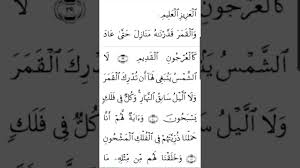 ٱلْعَزِيزِ ٱلْعَلِيمِ
وَٱلْقَمَرَ قَدَّرْنَٰهُ مَنَازِلَ حَتَّىٰ عَادَ
كَٱلْعُرْجُونِ ٱلْقَدِيمِ ۝ لَا
ٱلشَّمْسُ يَنۢبَغِى لَهَآ أَن تُدْرِكَ ٱلْقَمَرَ
وَلَا ٱلَّيْلُ سَابِقُ ٱلنَّهَارِ ۚ وَكُلٌّ فِى فَلَكٍ
يَسْبَحُونَ ۝ وَءَايَةٌ لَّهُمْ أَنَّا
حَمَلْنَا ذُرِّيَّتَهُمْ فِى ٱلْفُلْكِ ٱلْمَشْحُونِ
۝ وَخَلَقْنَا لَهُم مِّن مِّثْلِهِۦ مَا